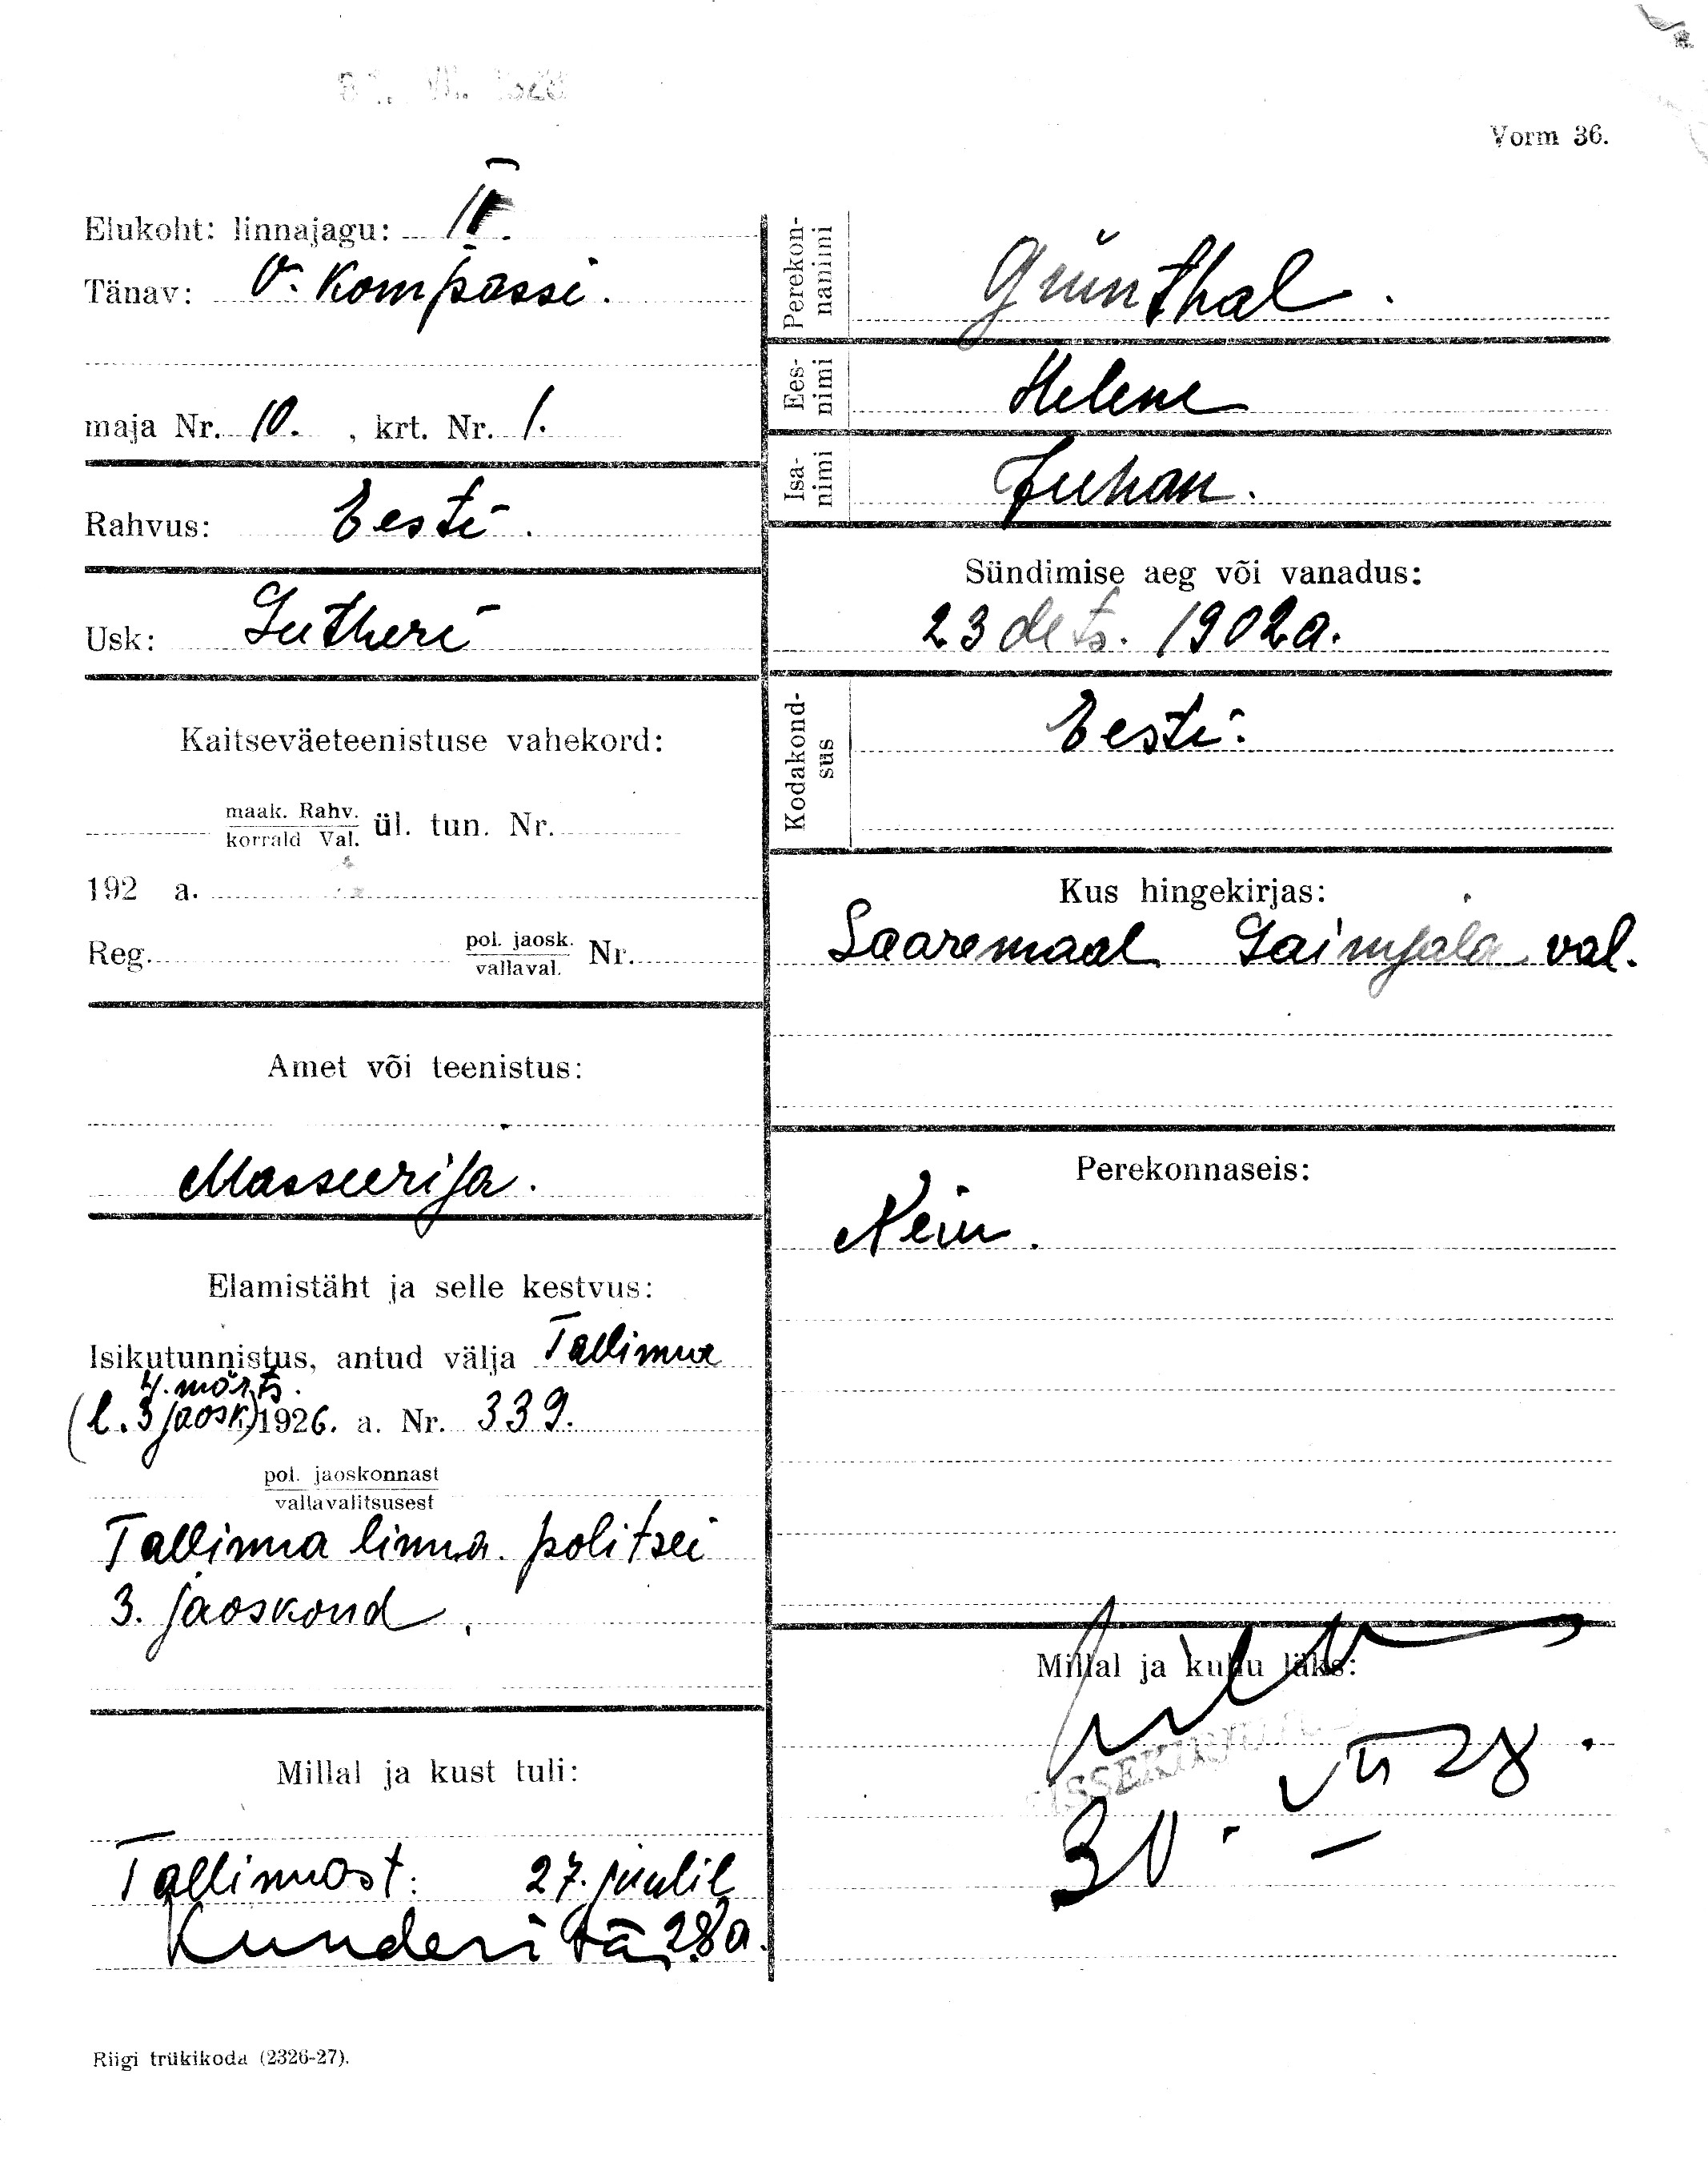 Vorm 36.
Elukoht: linnajagu: IV.
Tänav: V. Kompassi.
maja Nr. 10. , krt. Nr. 1.
Rahvus: Eesti.
Usk: Lutheri
Kaitseväeteenistuse vahekord:
maak. Rahv.
korrald Val. ül. tun. Nr.
192 a.
Reg. pol. jaosk.
vallaval. Nr.
Amet või teenistus:
Masseerija.
Elamistäht ja selle kestvus:
Isikutunnistus, antud välja Tallinna
4. märts.
(l. 3 jaosk) 1926. a. Nr. 339.
pol. jaoskonnast
vallavalitsusest
Tallinna linna politsei
3. jaoskond.
Millal ja kust tuli:
Tallinnast. 27. juulil
Kunderi tä 28 a.
Riigi trükikoda (2326-27).
Perekon-
nanimi
Grünthal.
Ees-
nimi
Helene
Isa-
nimi
Juhan.
Sündimise aeg või vanadus:
23 dets. 1902 a.
Kodakond-
sus
Eesti.
Kus hingekirjas:
Saaremaal Laimjala val.
Perekonnaseis:
Nein.
Millal ja kuhu läks:
SISSEKIRJUTATUD
30. VII 28.